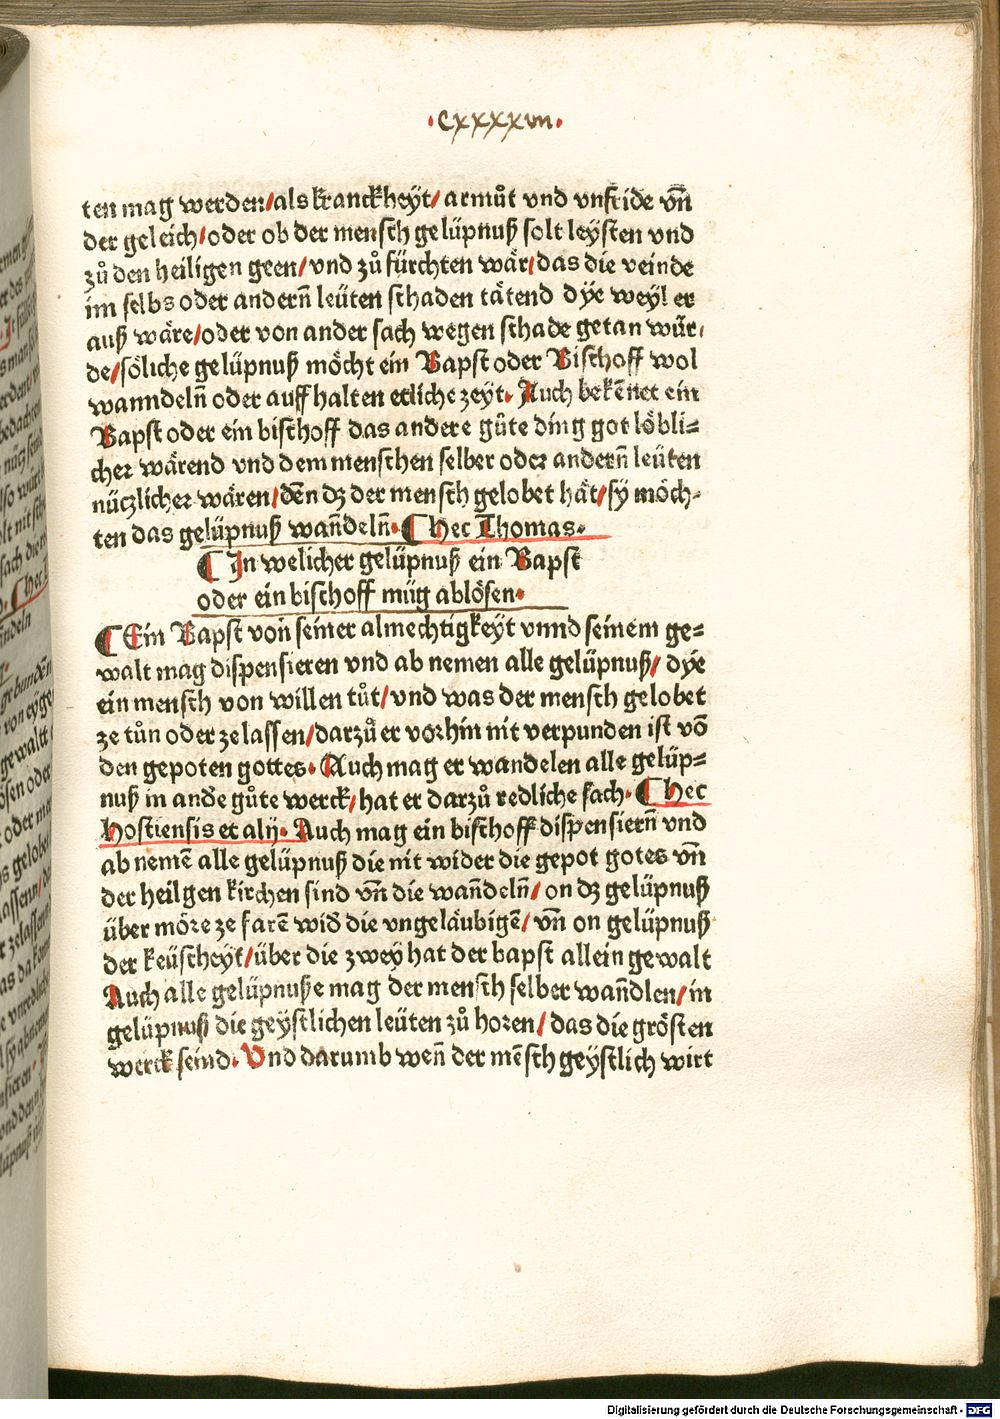 ·cxxxxvii·
ten mag werden/als kranckheÿt/ armůt vnd vnfride vn̄
der geleich/oder ob der mensch gelüpnuß solt leÿsten vnd
zů den heiligen geen/vnd zů fürchten wär/das die veinde
im selbs oder andern̄ leüten schaden tätend dÿe weÿl er
auß wäre/oder von ander sach wegen schade getan wür/
de/söliche gelüpnuß möcht ein Bapst oder Bischoff wol
wanndeln̄ oder auff halten etliche zeÿt. Auch bekēnet ein
Bapst oder ein bischoff das andere gůte ding got löbli⸗
cher wärend vnd dem menschen selber oder andern̄ leüten
nüczlicher wären/den̄ dz der mensch gelobet hät/sÿ möch⸗
ten das gelüpnuß wan̄deln̄. ¶ hec Thomas.
¶ In welicher gelüpnuß ein Bapst
oder ein bischoff müg ablösen.
¶ Ein Bapst von seiner almechtigkeÿt vnnd seinem ge⸗
walt mag dispensieren vnd ab nemen alle gelüpnuß/ dÿe
ein mensch von willen tůt/vnd was der mensch gelobet
ze tůn oder ze lassen/darzů er vorhin nit verpunden ist vō
den gepoten gottes. Auch mag er wandelen alle gelüp⸗
nuß in and̄e gůte werck/hat er darzů redliche sach. ¶ hec
hostiensis et alij. Auch mag ein bischoff dispensiern̄ vnd
ab nemē alle gelüpnuß die nit wider die gepot gotes vn̄
der heilgen kirchen sind vn̄ die wan̄deln̄/ on dz gelüpnuß
über möre ze farē wid̄ die vngeläubigē/ vn̄ on gelüpnuß
der keüscheÿt/über die zweÿ hat der bapst allein gewalt
Auch alle gelüpnuße mag der mensch selber wan̄dlen/in
gelüpnuß die geÿstlichen leüten zů horen/ das die grösten
werck seind. Vnd darumb wen̄ der mēsch geÿstlich wirt
Digitalisierung gefördert durch die Deutsche Forschungsgemeinschaft - DFG